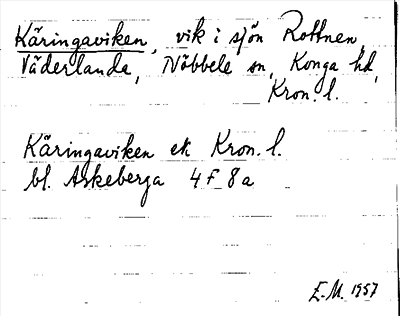 Käringaviken, vik i sjön Rottnen,
Väderlanda, Nöbbele sn, Konga hd,
Kron. l.
Käringaviken ek Kron. l.
bl. Askeberga 4F 8a
E.M. 1957